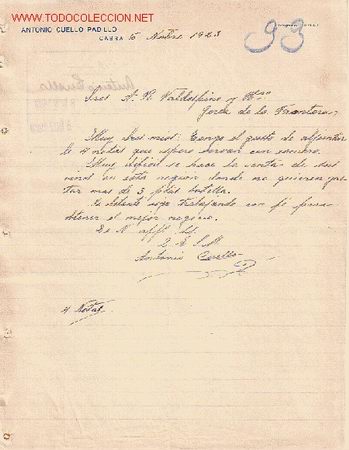 www.TODOCOLECCION.NET
ANTONIO CUELLO PADILLO
CABRA 5 Novbre 1923
93
Sres A. R. Valdespino y Hno
Jerez de la Frontera
Muy Sres mios: Tengo el gusto de adjuntar
le 4 notas que espero servan con esmero.
Muy dificil se hace la venta de sus
vinos en esta region donde no quieren gas
tar mas de 3 ptas botella.
No obstante sigo trabajando con fé para
obtener el mejor negocio.
De V affmo
Antonio Cuello
4 Notas